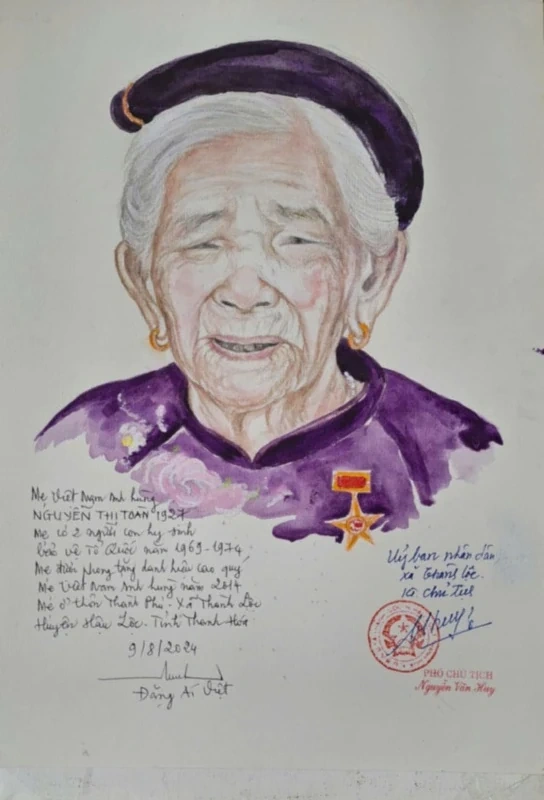 Mẹ Việt Nam Anh hùng
NGUYỄN THỊ TOÀN 1927
Mẹ có 2 người con hy sinh
bảo vệ Tổ Quốc năm 1969-1974
Mẹ được tặng danh hiệu cao quý
Mẹ Việt Nam Anh hùng năm 2014
Mẹ ở thôn Thanh Phú. Xã Thành Lộc
Huyện Hậu Lộc. Tỉnh Thanh Hóa
9/8/2024
Đặng Ái Việt
Uỷ ban nhân dân
xã Thành Lộc.
K. Chủ tịch
PHÓ CHỦ TỊCH
Nguyễn Văn Huy